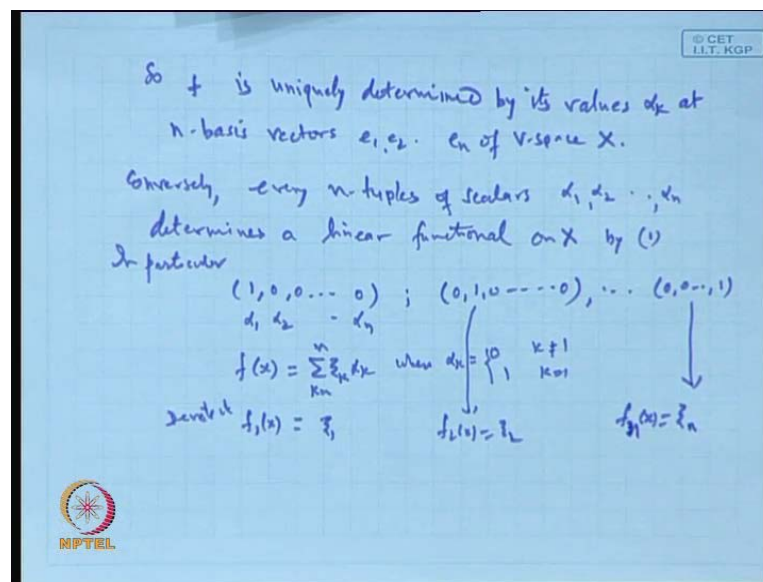 © CET
I.I.T. KGP
So f is uniquely determined by its values αₖ at
n-basis vectors e₁, e₂. eₙ of V-space X.
Conversely, every n-tuples of scalars α₁, α₂ .., αₙ
determines a linear functional on X by (1)
In particular
(1, 0, 0 ... 0) ; (0, 1, 0 ----- 0), ... (0, 0 .., 1)
α₁ α₂ - αₙ
f(x) = Σ ξₖ αₖ when αₖ = { 0 k ≠ 1
1 k=1
Denote it f₁(x) = ξ₁ f₂(x) = ξ₂ fₙ(x) = ξₙ
NPTEL